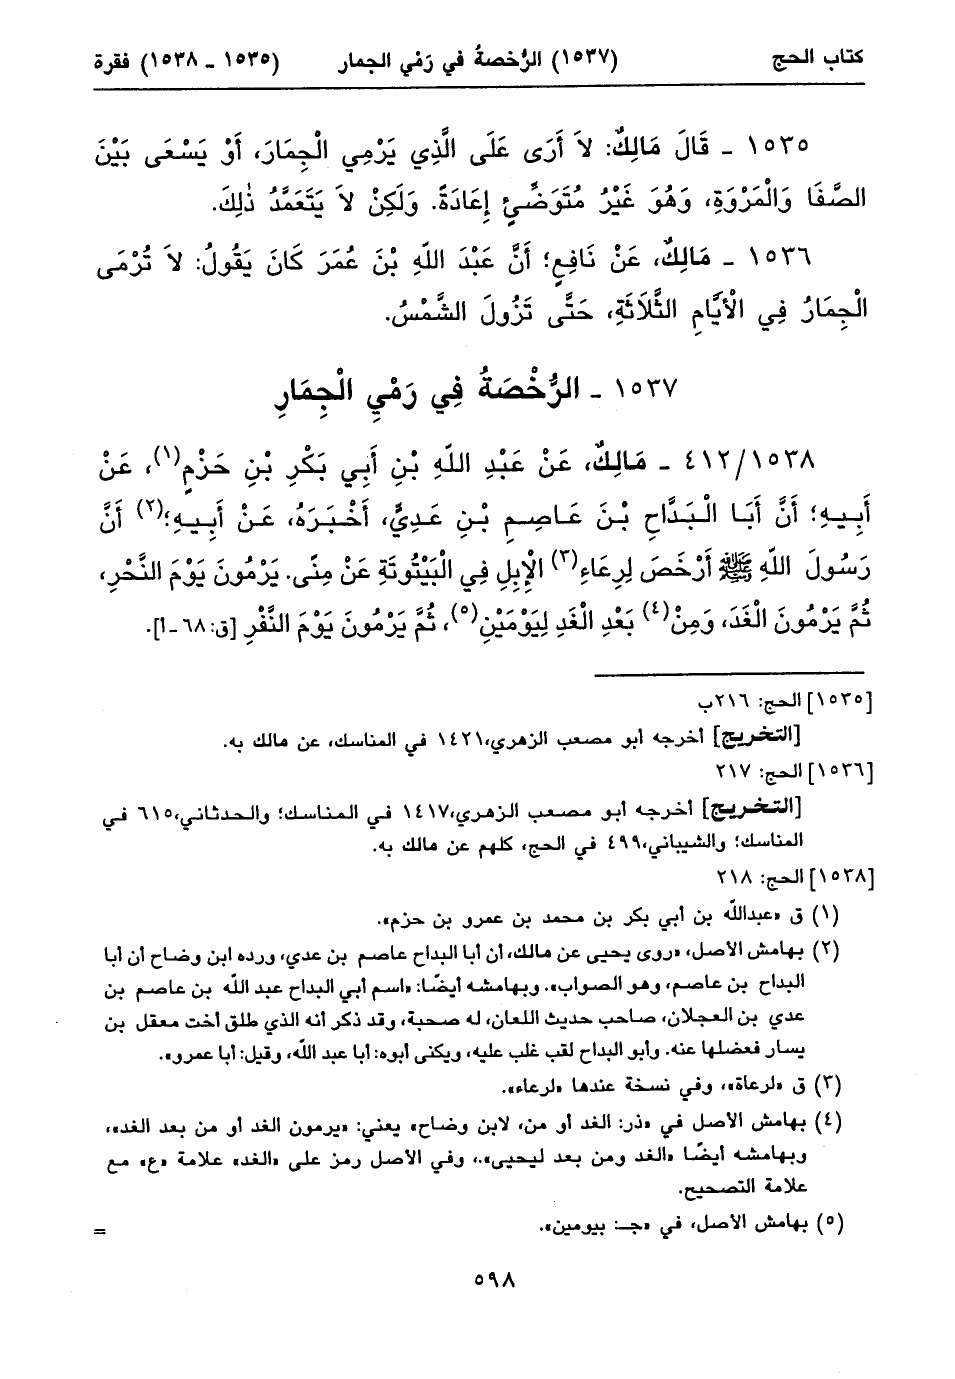 كتاب الحج (١٥٣٧) الرُّخصةُ في رَمْي الجمار (١٥٣٥ - ١٥٣٨) فقرة
١٥٣٥ - قَالَ مَالِكٌ: لاَ أَرَى عَلَى الَّذِي يَرْمِي الْجِمَارَ، أَوْ يَسْعَى بَيْنَ
الصَّفَا وَالْمَرْوَةِ، وَهُوَ غَيْرُ مُتَوَضِّئٍ إِعَادَةً. وَلَكِنْ لاَ يَتَعَمَّدُ ذٰلِكَ.
١٥٣٦ - مَالِكٌ، عَنْ نَافِعٍ؛ أَنَّ عَبْدَ اللهِ بْنَ عُمَرَ كَانَ يَقُولُ: لاَ تُرْمَى
الْجِمَارُ فِي الْأَيَّامِ الثَّلَاثَةِ، حَتَّى تَزُولَ الشَّمْسُ.
١٥٣٧ - الرُّخْصَةُ فِي رَمْيِ الْجِمَارِ
٤١٢/١٥٣٨ - مَالِكٌ، عَنْ عَبْدِ اللهِ بْنِ أَبِي بَكْرِ بْنِ حَزْمٍ(١)، عَنْ
أَبِيهِ؛ أَنَّ أَبَا الْبَدَّاحِ بْنَ عَاصِمِ بْنِ عَدِيٍّ، أَخْبَرَهُ، عَنْ أَبِيهِ؛(٢) أَنَّ
رَسُولَ اللهِ ﷺ أَرْخَصَ لِرِعَاءِ(٣) الْإِبِلِ فِي الْبَيْتُوتَةِ عَنْ مِنًى. يَرْمُونَ يَوْمَ النَّحْرِ،
ثُمَّ يَرْمُونَ الْغَدَ، وَمِنْ(٤) بَعْدِ الْغَدِ لِيَوْمَيْنِ(٥)، ثُمَّ يَرْمُونَ يَوْمَ النَّفْرِ [ق: ٦٨ - أ].
[١٥٣٥] الحج: ٢١٦ب
[التخريج] أخرجه أبو مصعب الزهري، ١٤٢١ في المناسك، عن مالك به.
[١٥٣٦] الحج: ٢١٧
[التخريج] أخرجه أبو مصعب الزهري، ١٤١٧ في المناسك؛ والحدثاني، ٦١٥ في
المناسك؛ والشيباني، ٤٩٩ في الحج، كلهم عن مالك به.
[١٥٣٨] الحج: ٢١٨
(١) ق «عبدالله بن أبي بكر بن محمد بن عمرو بن حزم».
(٢) بهامش الأصل، «روى يحيى عن مالك، أن أبا البداح عاصم بن عدي، ورده ابن وضاح أن أبا
البداح بن عاصم، وهو الصواب». وبهامشه أيضًا: «اسم أبي البداح عبد الله بن عاصم بن
عدي بن العجلان، صاحب حديث اللعان، له صحبة، وقد ذكر أنه الذي طلق أخت معقل بن
يسار فعضلها عنه. وأبو البداح لقب غلب عليه، ويكنى أبوه: أبا عبد الله، وقيل: أبا عمرو».
(٣) ق «لرعاة»، وفي نسخة عندها «لرعاء».
(٤) بهامش الأصل في «ذر: الغد أو من، لابن وضاح» يعني: «يرمون الغد أو من بعد الغد»،
وبهامشه أيضًا «الغد ومن بعد ليحيى».، وفي الأصل رمز على «الغد» علامة «ع» مع
علامة التصحيح.
(٥) بهامش الأصل، في «جـ: بيومين».
=
٥٩٨